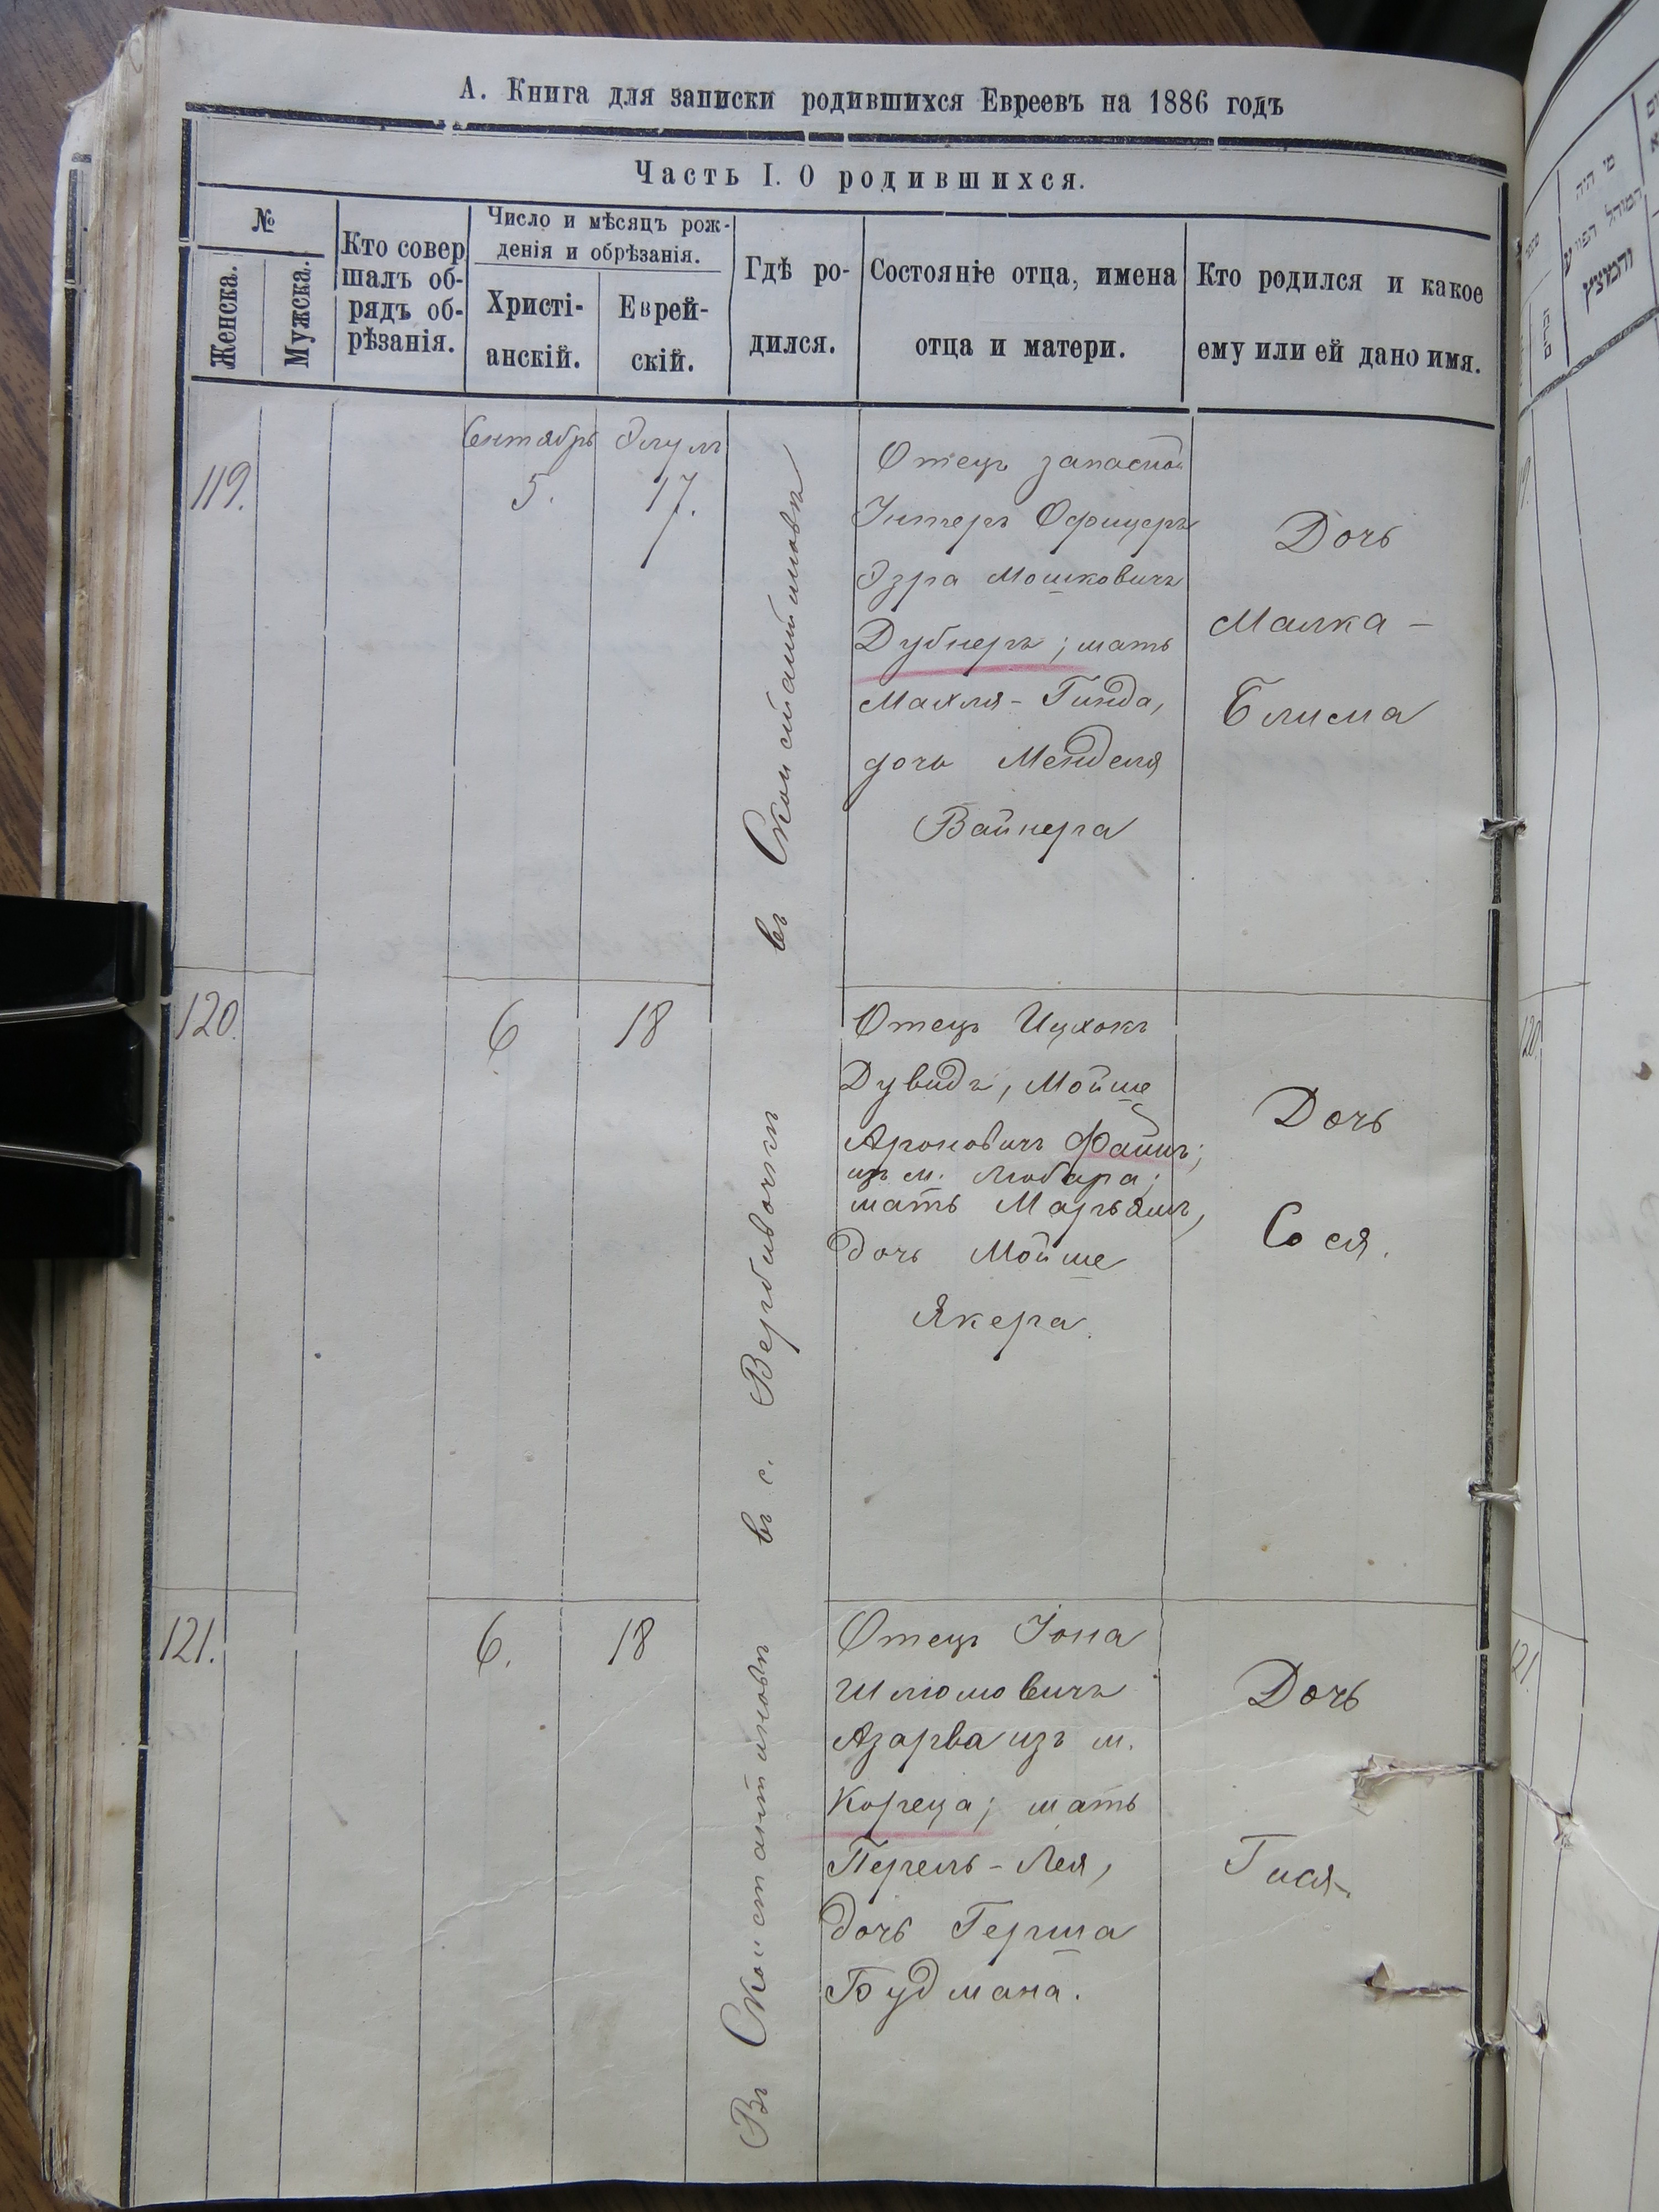 А. Книга для записки родившихся Евреевъ на 1886 годъ
Часть I. О родившихся.
№
Женска.
Мужска.
Кто совер
шалъ об-
рядъ об-
рѣзанія.
Число и мѣсяцъ рож-
денія и обрѣзанія.
Христі-
анскій.
Еврей-
скій.
Гдѣ ро-
дился.
Состояніе отца, имена
отца и матери.
Кто родился и какое
ему или ей дано имя.
119.
Сентябрь
5.
Элулъ
17.
въ Сконстантиновѣ
Отецъ запасной
Унтеръ Офицеръ
Эзра Мошковичъ
Дубнеръ; мать
Махля-Гинда,
дочь Менделя
Вайнера
Дочь
Малка-
Блима
120.
6
18
въ с. Вербивочки
Отецъ Ицхокъ
Дувидъ, Мойше
Ароновичъ Файнъ;
изъ м. Любара;
мать Марьямъ,
дочь Мойше
Якера.
Дочь
Сося.
121.
6.
18
Въ Сконстантиновѣ
Отецъ Іона
Шлюмовичъ
Азарва изъ м.
Кореца; мать
Перель-Лея,
дочь Герша
Будмана.
Дочь
Гися.
מי היה
המוהל הפורע
והמוצץ
120.
121.